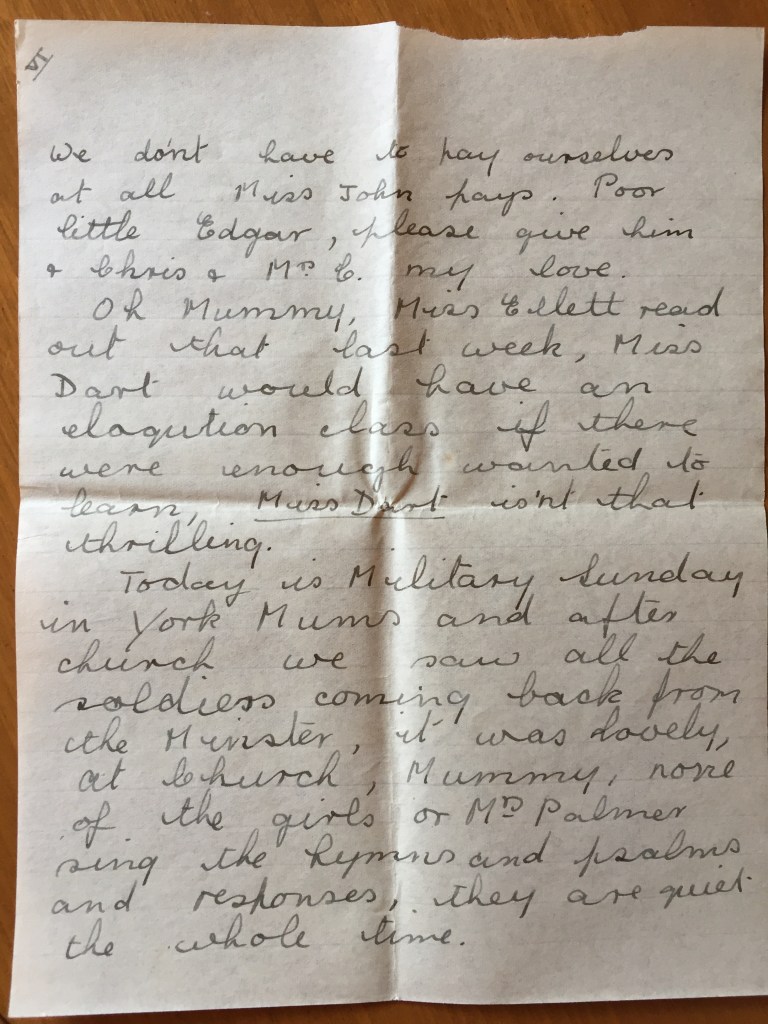 VI
We do'nt have to pay ourselves
at all Miss John pays. Poor
little Edgar, please give him
& Chris & Mrs C. my love.
Oh Mummy, Miss Ellett read
out that last week, Miss
Dart would have an
eloqution class if there
were enough wanted to
learn, Miss Dart is'nt that
thrilling.
Today is Military Sunday
in York Mums and after
church we saw all the
soldiers coming back from
the Minster, it was lovely,
at Church, Mummy, none
of the girls or Mrs Palmer
sing the hymns and psalms
and responses, they are quiet
the whole time.